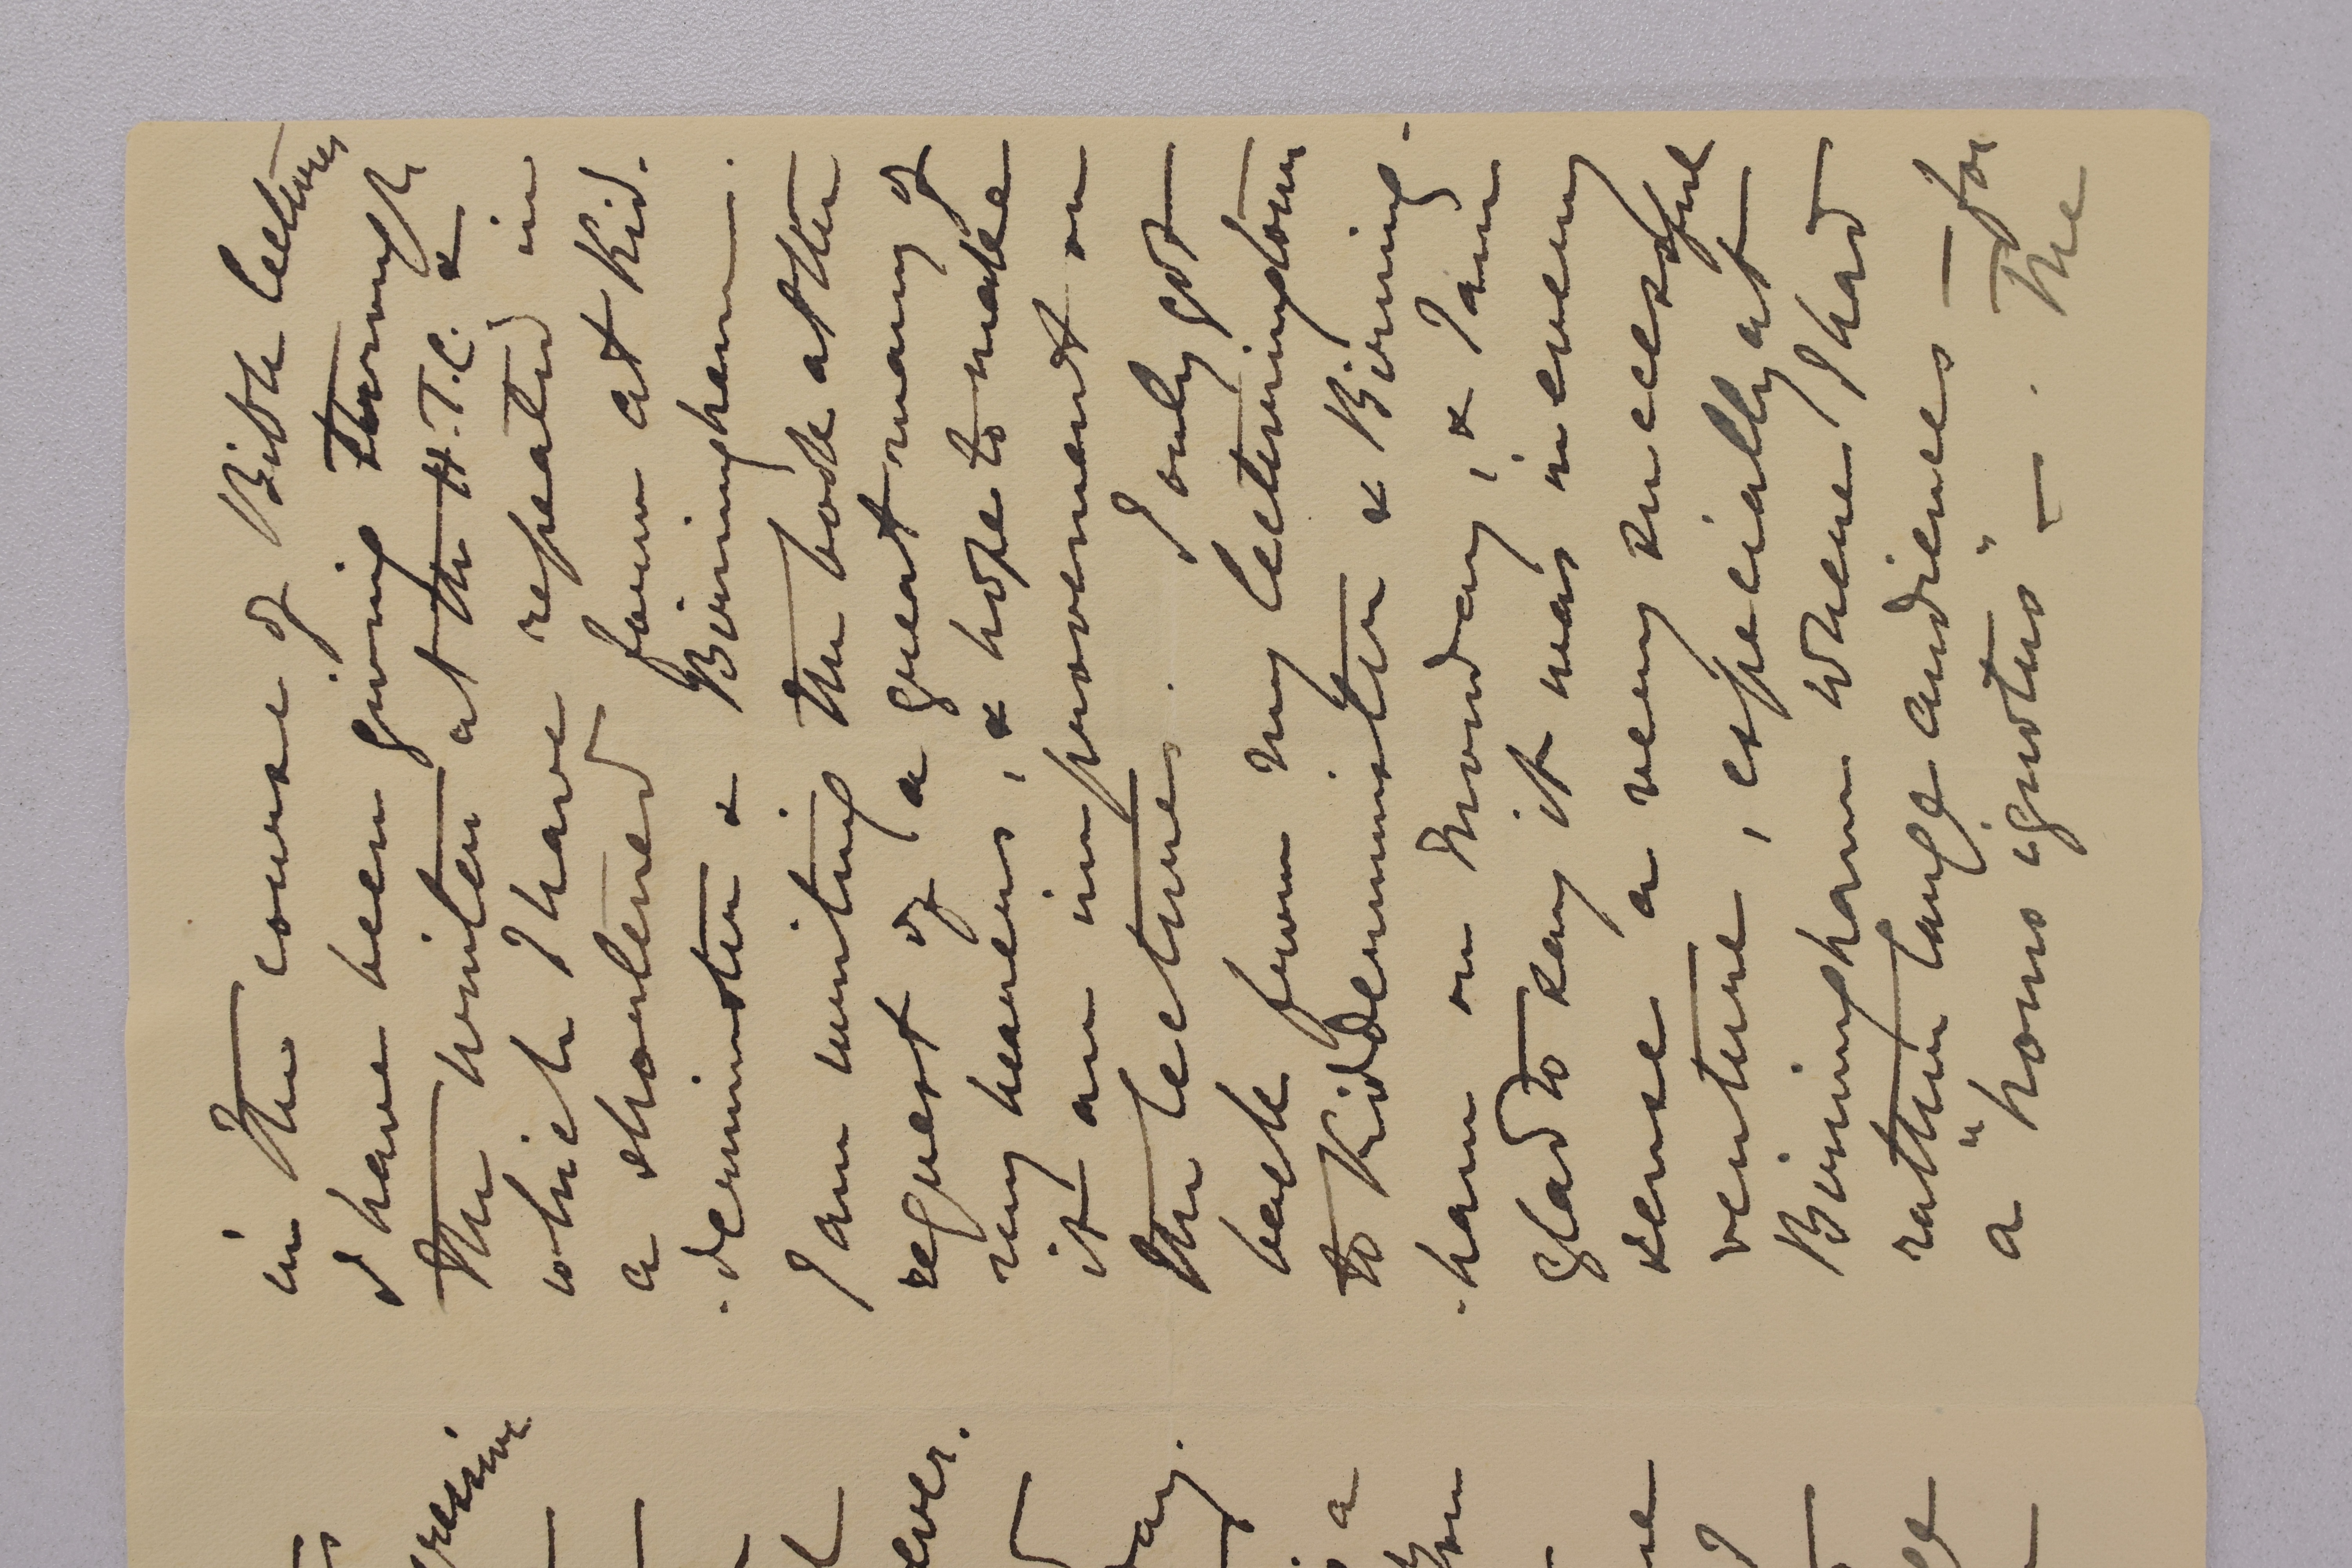 in the course of Bible lectures
I have been giving through
the winter at the H.T.C. &
which I have repeated in
a shortened form at Kid-
-derminster & Birmingham.
I am writing the book at the
request of a great many of
my hearers, & hope to make
it an improvement on
the lectures. I only got
back from my lecturing tour
to Kidderminster & Birming-
-ham on Monday, & I am
glad to say it was in every
sense a very successful
venture, especially at
Birmingham where I had
rather large audiences — for
a "homo ignotus" —. The
ever.
ay.
a